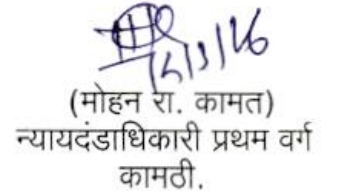 16/3/26
(मोहन रा. कामत)
न्यायदंडाधिकारी प्रथम वर्ग
कामठी.